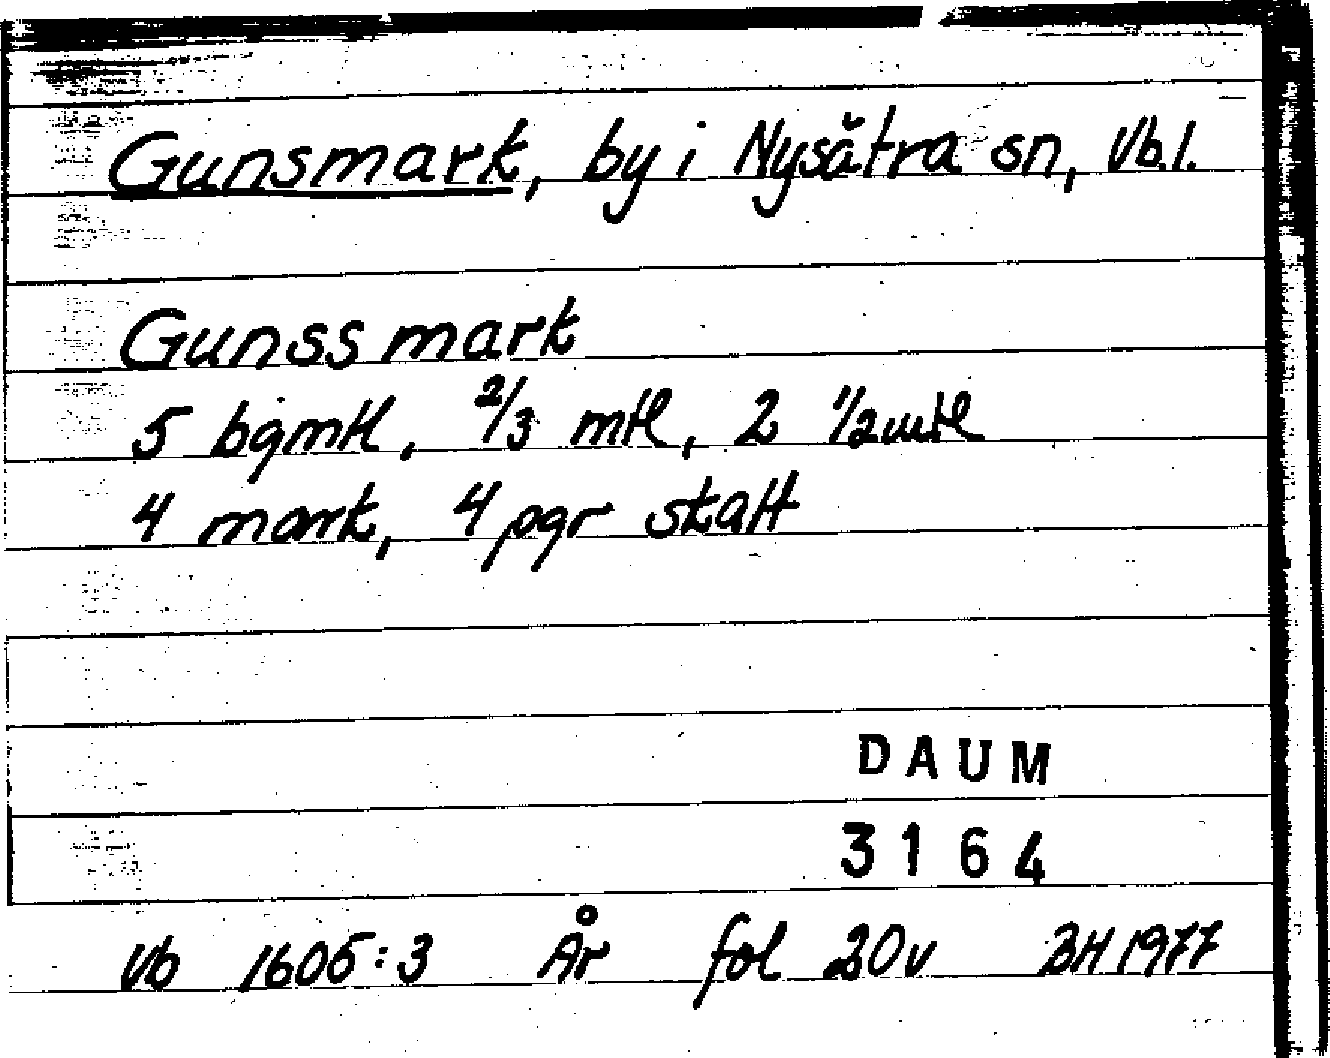 Gunsmark, by i Nysätra sn, Vb.l.
Gunssmark
5 bgmtl, 2/3 mtl, 2 1/2 mtl
4 mark, 4 pgr skatt
DAUM
3164
Vb 1606:3 År fol 20v BH 1977